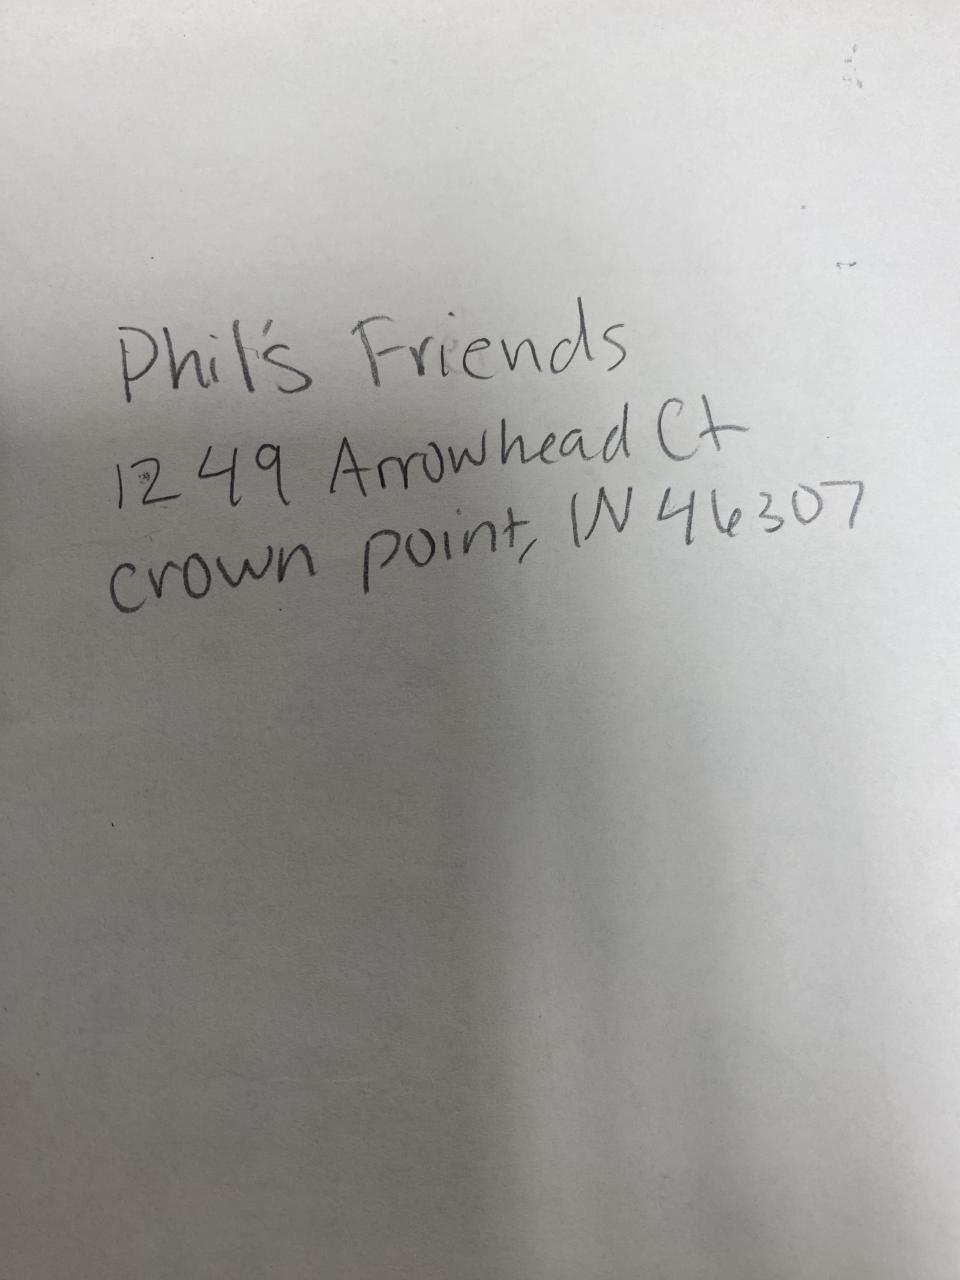 Phil's Friends
1249 Arrowhead Ct
crown point, IN 46307